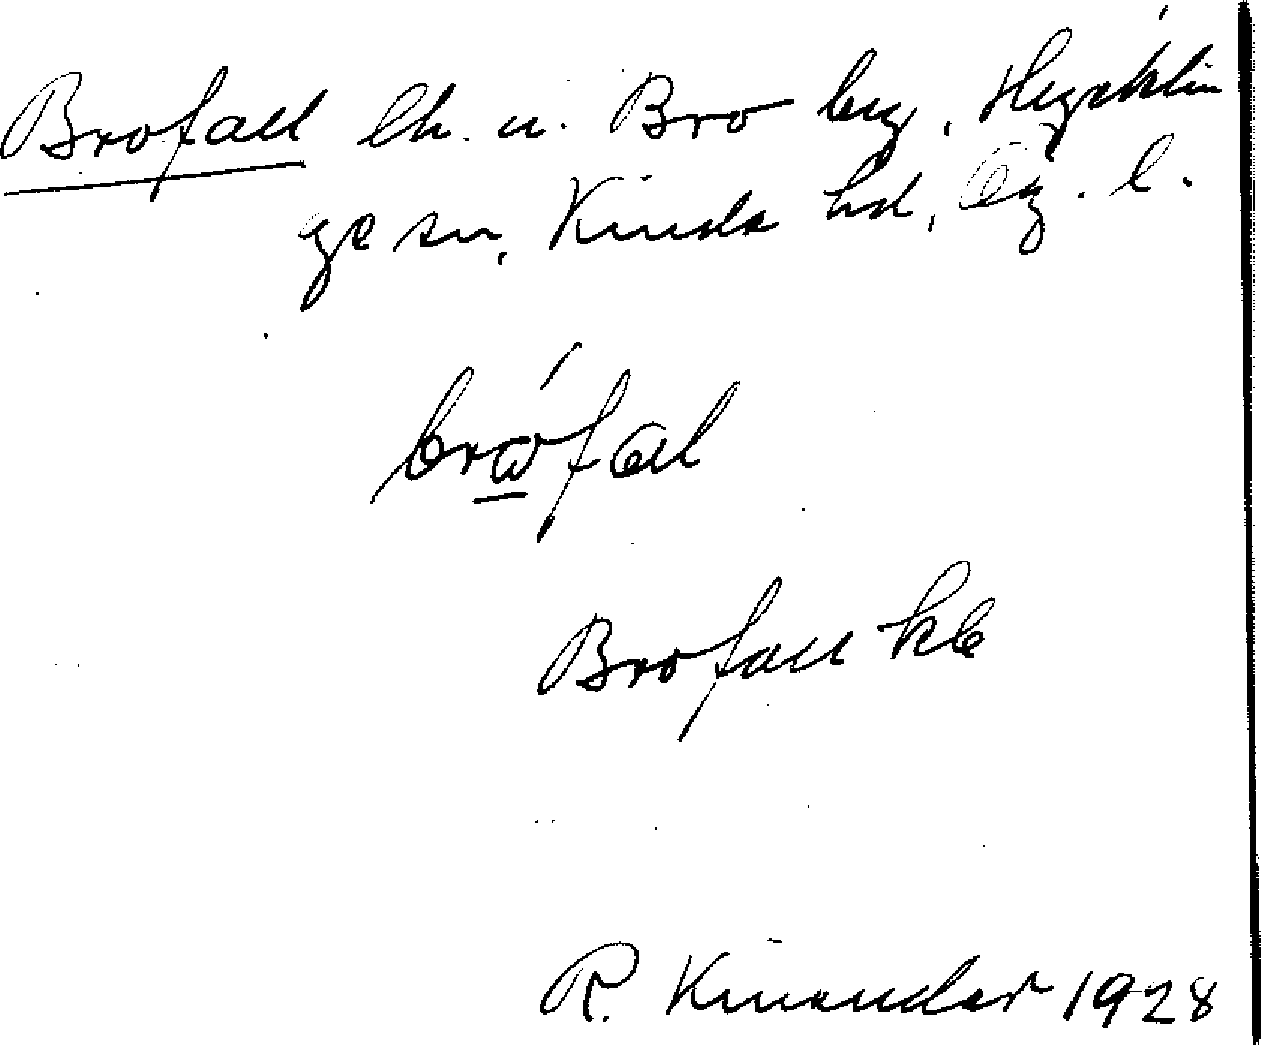 Brofall lh. u. Bro by, Hycklin
ge sn, Kinda hd, Ög. l.
bro̲fal
Brofall kb
R. Kinander 1928